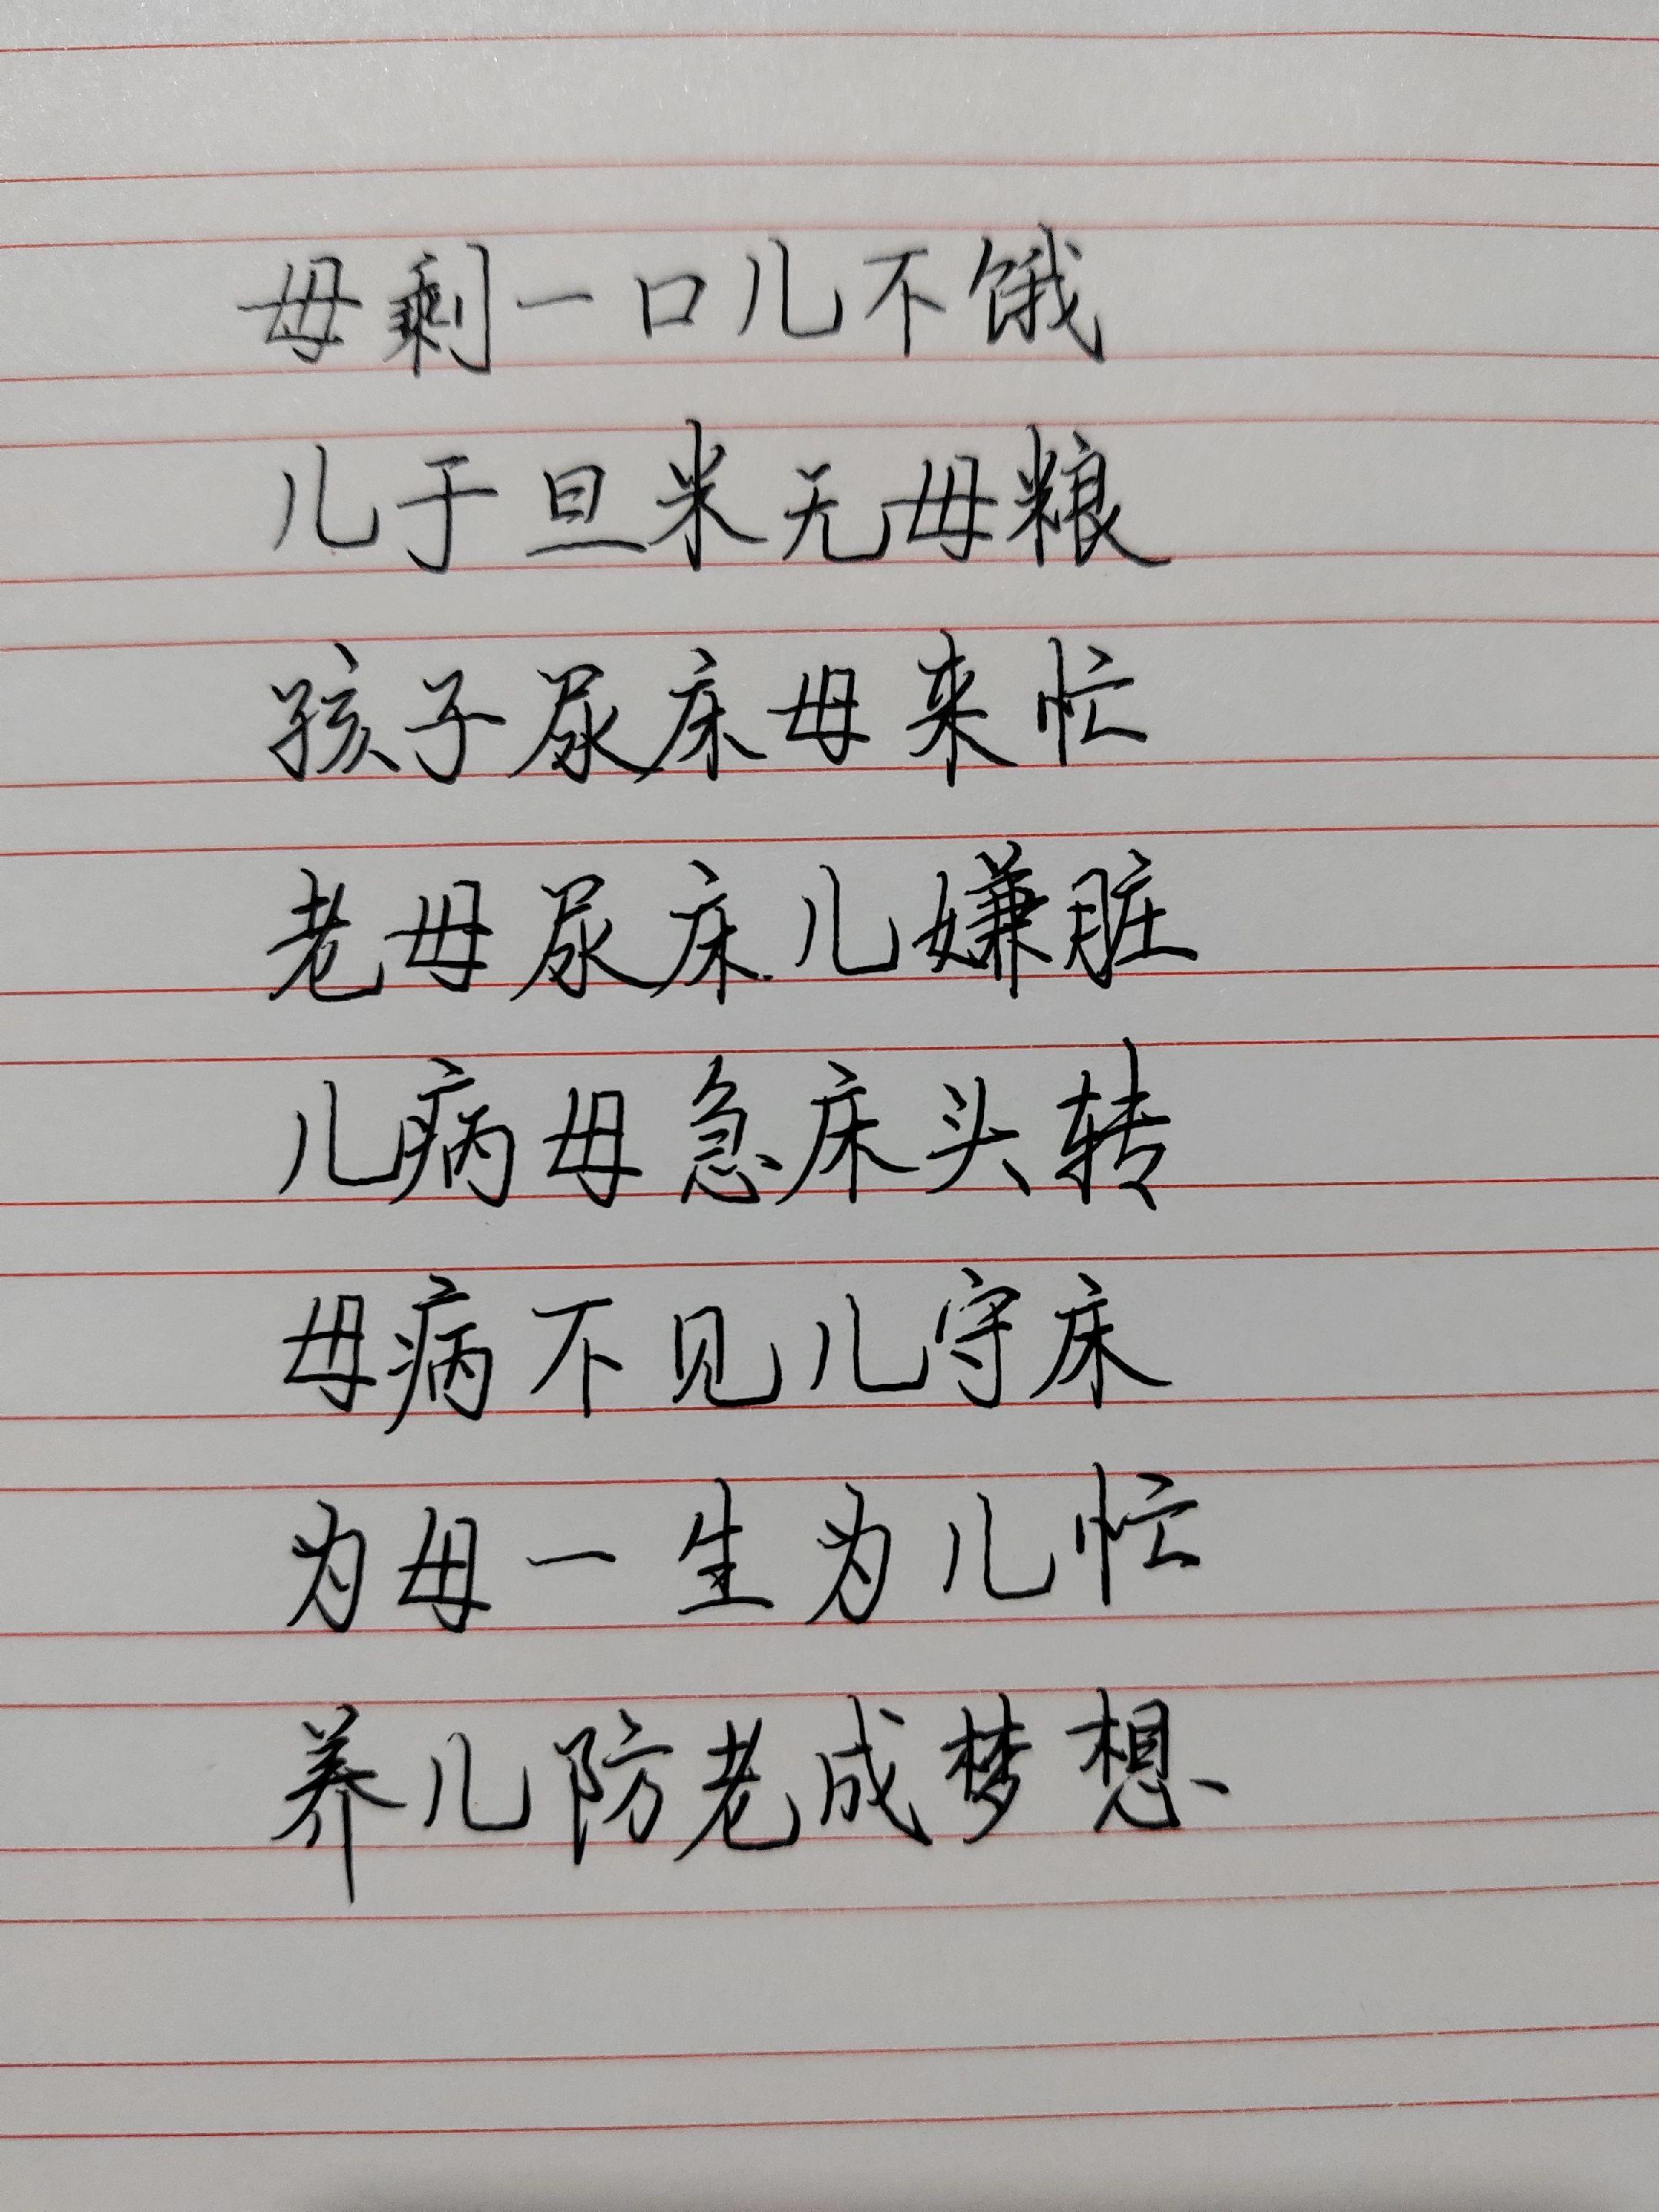 母剩一口儿不饿
儿于旦米无母粮
孩子尿床母来忙
老母尿床儿嫌脏
儿病母急床头转
母病不见儿守床
为母一生为儿忙
养儿防老成梦想